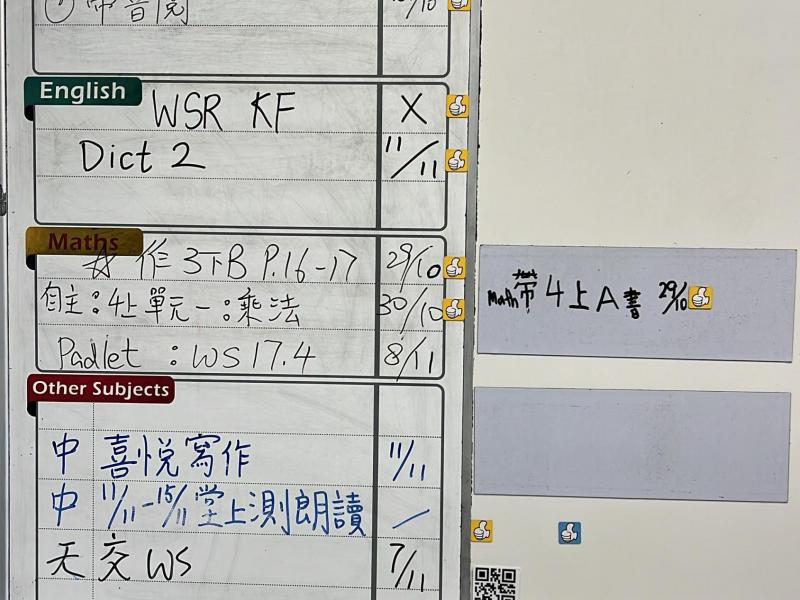 English
WSR KF X
Dict 2 11/11
Maths
☆ 作 3下B P.16-17 29/10
自主：4上單元一：乘法 30/10
Padlet : WS 17.4 8/11
Math 帶 4上A書 29/10
Other Subjects
中 喜悅寫作 11/11
中 11/11-15/11 堂上測朗讀
天 交 WS 7/11